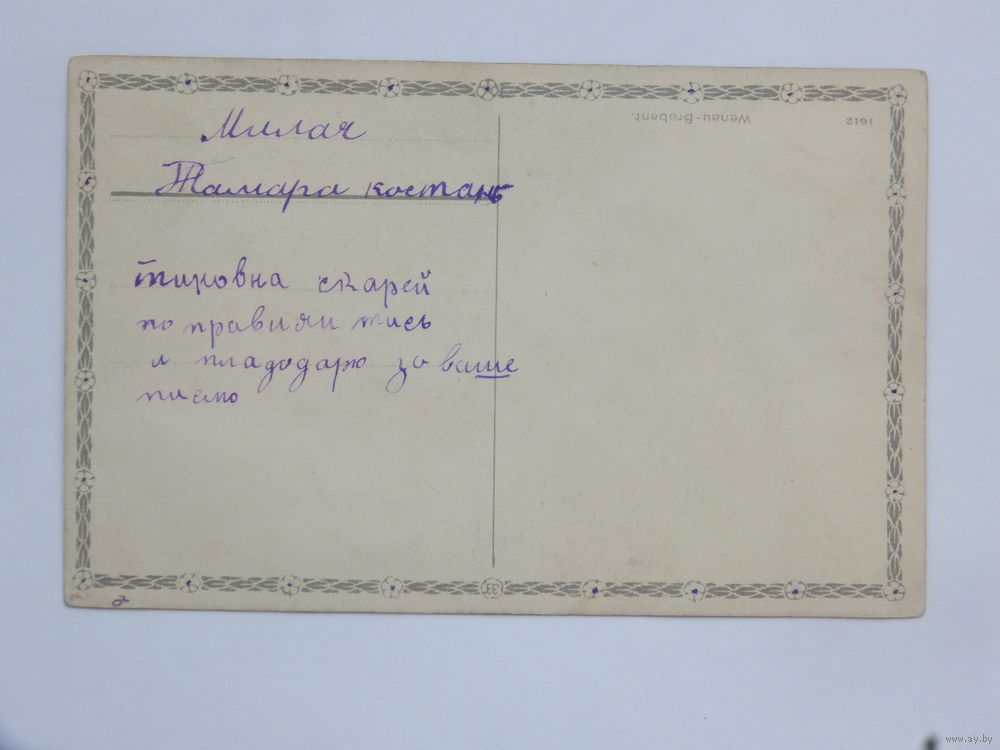 Милая
Тамара костань
тиновна скарей
по правияи тись
и пладодарю за ваше
писмо
Wenau-Brabant.
1612
33
www.ay.by